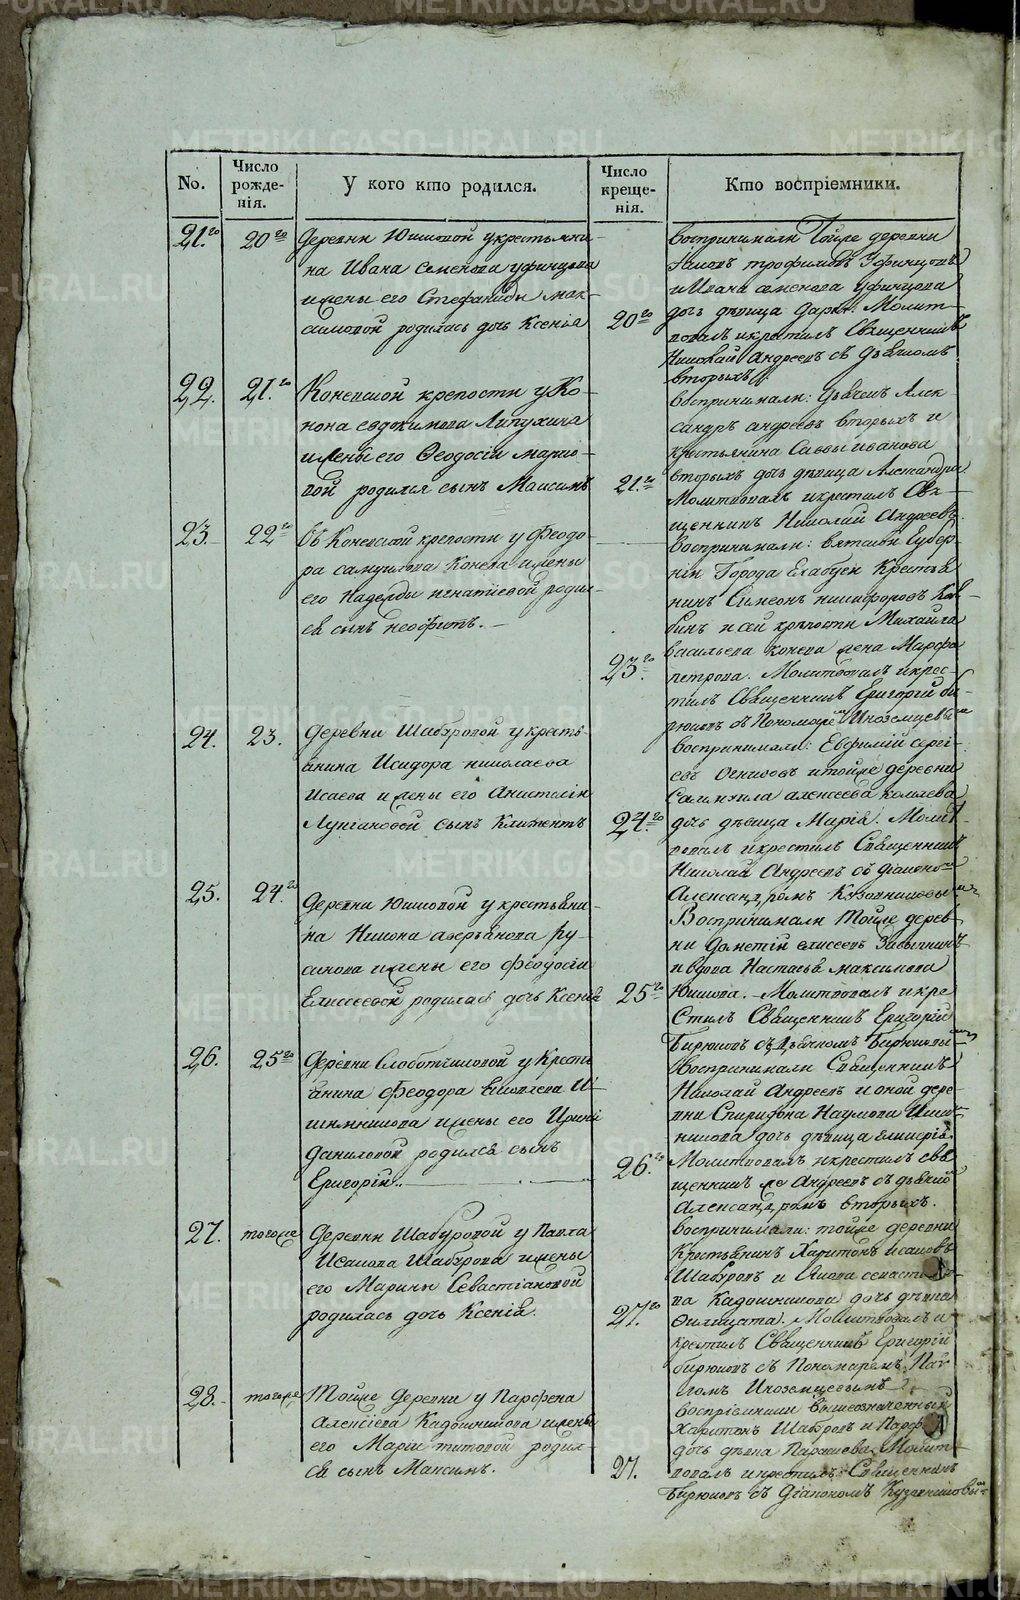 No.
Число рожде-
нія.
У кого кто родился.
Число креще-
нія.
Кто воспріемники.
21.го
20го
Деревни Юшковой у крестьяни-
на Ивана Семенова Уфинцова
и жены его Стефаниды Мак-
симовой родилась дочь Ксенія
20го
Воспринимали Тойже деревни
Трофимовъ Уфинцовъ
и Ивана Семенова Уфинцова
дочь дѣвица Дарья. Молит-
вовалъ и крестилъ Священникъ
Николай Андреевъ съ дьячкомъ
Вторыхъ
22.
21.го
Коневской крепости у Ко-
нона Евдокимова Липухина
и жены его Феодосіи Марко-
вой родился сынъ Максимъ
21.го
Воспринимали: Дьячекъ Алек-
сандръ Андреевъ Вторыхъ и
крестьянина Саввы Иванова
Вторыхъ дочь дѣвица Александра
Молитвовалъ и крестилъ Свя-
щенникъ Николай Андреевъ
23.
22го
Въ Коневской крепости у Феодо-
ра Самуилова Конева и жены
его Надежды Игнатіевой родил-
ся сынъ Неофитъ.
23.го
Воспринимали: Вятской Губер-
ніи Города Елабуги Крестья
нинъ Симеонъ Никифоровъ
и сей крѣпости Михайла
Васильева Конева жена Марфа
Петрова. Молитвовалъ и крес-
тилъ Священникъ Григорій Би-
рюковъ съ Пономаремъ Иноземцевымъ
24.
23.
Деревни Шабуровой у кресть-
янина Исидора Николаева
Исаева и жены его Анастасіи
сынъ Климентъ
24.го
Воспринимали: Евфимій Сергі-
евъ и тойже деревни
Самуила Алексеева
дочь дѣвица Марія. Молит-
вовалъ и крестилъ Священникъ
Николай Андреевъ съ діакономъ
Александромъ Кузовниковымъ
25.
24.го
Деревни Юшковой у крестьяни-
на Никона Аверьянова Ру-
санова и жены его Феодосіи
Елисеевой родилась дочь Ксенія
25го
Воспринимали Тойже дерев-
ни Елисеевъ
и вдова Настасья Максимова
Юшкова. Молитвовалъ и кре
стилъ Священникъ Григорій
Бирюковъ съ дьячкомъ Бирюковымъ
26.
25го
Деревни Слободчиковой у Кресть
янина Феодора
и жены его Ирині
Даниловой родился сынъ
Григорій.
26.го
Воспринимали Священникъ
Николай Андреевъ и оной дере-
вни Спиридона Наумова
дочь дѣвица
Молитвовалъ и крестилъ Свя
щенникъ же Андреевъ съ дьячкомъ
Александромъ Вторыхъ.
27.
того же
Деревни Шабуровой у Павла
Исакова Шабурова и жены
его Марины Севастіановой
родилась дочь Ксенія.
27.го
Воспринимали: тойже деревни
Крестьянинъ Харитонъ Исаковъ
Шабуровъ и Якова Севастьяно-
ва Кадошникова дочь дѣвка
Филицата. Молитвовалъ и
крестилъ Священникъ Григорій
Бирюковъ съ Пономаремъ Пав
ломъ Иноземцевымъ
28.
того же
Тойже Деревни у Парфена
Алексіева Кадошникова и жены
его Маріи Титовой родил-
ся сынъ Максимъ.
27.
воспріемники вышеозначенный
Харитонъ Шабуровъ и
дочь дѣвка Парасковья Молит-
вовалъ и крестилъ Священникъ
Бирюковъ съ Діакономъ Кузовниковымъ
METRIKI.GASO-URAL.RU